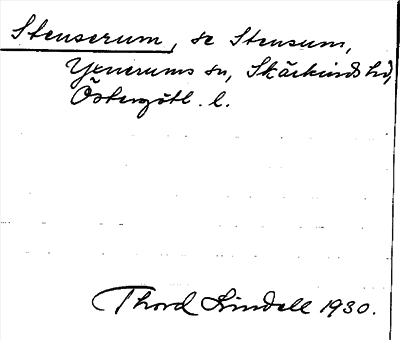 Stenserum, se Stensum,
Yxnerums sn, Skärkinds hd,
Östergötl. l.
Thord Lindell 1930.